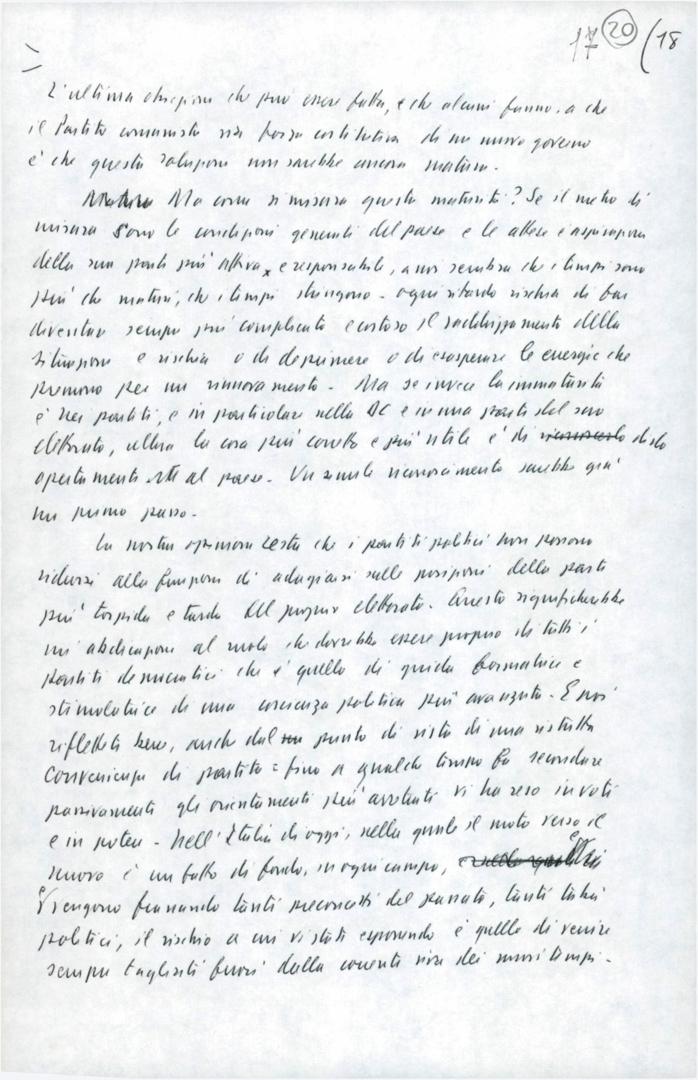 17 20 (18
L'ultima obiezione che può essere fatta, e che alcuni fanno, a che
il Partito comunista sia forza costitutiva di un nuovo governo
è che questa soluzione non sarebbe ancora matura.
Matura Ma come si misura questa maturità? Se il metro di
misura sono le condizioni generali del paese e le attese e aspirazioni
della sua parte più attiva e responsabile, a noi sembra che i tempi sono
più che maturi, che i tempi stringono. Ogni ritardo rischia di far
diventare sempre più complicato e costoso il raddrizzamento della
situazione e rischia o di deprimere o di esasperare le energie che
premono per un rinnovamento. Ma se invece la immaturità
è nei partiti, e in particolare nella DC e in una parte del suo
elettorato, allora la cosa più corretta e più utile è di riconoscerlo dirlo
apertamente al paese. Un simile riconoscimento sarebbe già
un primo passo.
La nostra opinione resta che i partiti politici non possono
ridursi alla funzione di adagiarsi sulle posizioni della parte
più torpida e tarda del proprio elettorato. Questo significherebbe
un'abdicazione al ruolo che dovrebbe essere proprio di tutti i
partiti democratici che è quello di guida formatrice e
stimolatrice di una coscienza politica più avanzata. E poi
riflettete bene, anche dal punto di vista di una ristretta
convenienza di partito: fino a qualche tempo fa secondare
passivamente gli orientamenti più arretrati vi ha reso in voti
e in potere. Nell'Italia di oggi, nella quale il moto verso il
nuovo è un fatto di fondo, in ogni campo, e
vengono franando tanti preconcetti del passato, tanti tabù
politici, il rischio a cui vi state esponendo è quello di venire
sempre tagliati fuori dalla corrente viva dei nuovi tempi.